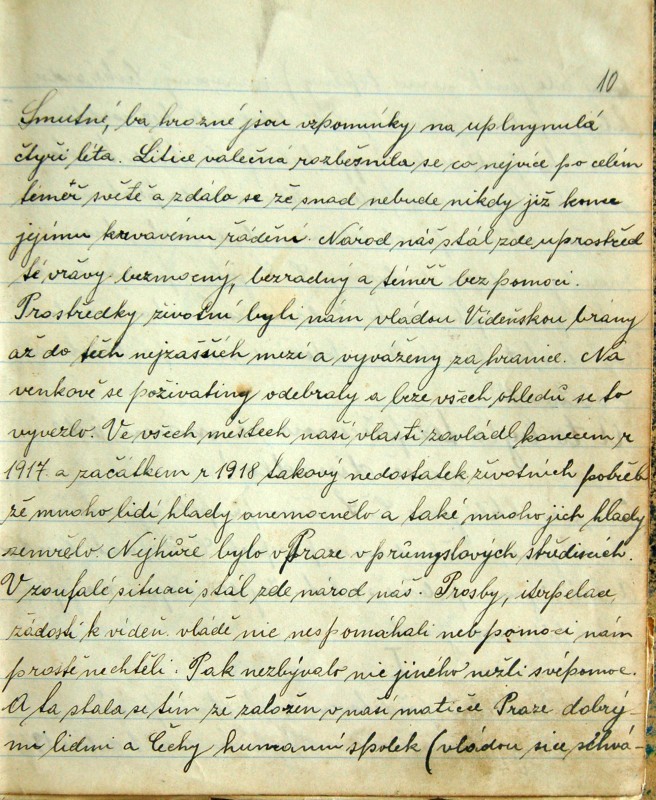 10
Smutné, ba hrozné jsou vzpomínky na uplynynulá
čtyři léta. Litice válečná rozběsnila se co nejvíce po celém
téměř světě a zdálo se že snad nebude nikdy již konce
jejímu krvavému řádění. Národ náš stál zde uprostřed
té vřávy bezmocný, bezradný a téměř bez pomoci.
Prostředky životní byli nám vládou Vídeňskou brány
až do těch nejzašších mezí a vyváženy za hranice. Na
venkově se poživatiny odebraly a beze všech ohledů se to
vyvezlo. Ve všech městech naší vlasti zavládl koncem r
1917. a začátkem r 1918 takový nedostatek životních potřeb
že mnoho lidí hlady onemocnělo a také mnoho jich hlady
zemřelo. Nejhůře bylo v Praze v průmyslových střediscích.
V zoufalé situaci stál zde národ náš. Prosby, iterpelace,
žádosti k vídeň. vládě nic nespomáhali neb pomoci nám
prostě nechtěli. Pak nezbývalo nic jiného nežli svépomoc.
A ta stala se tím že založen v naší matičce Praze dobrý-
mi lidmi a Čechy humanní spolek (vládou sice schvá-